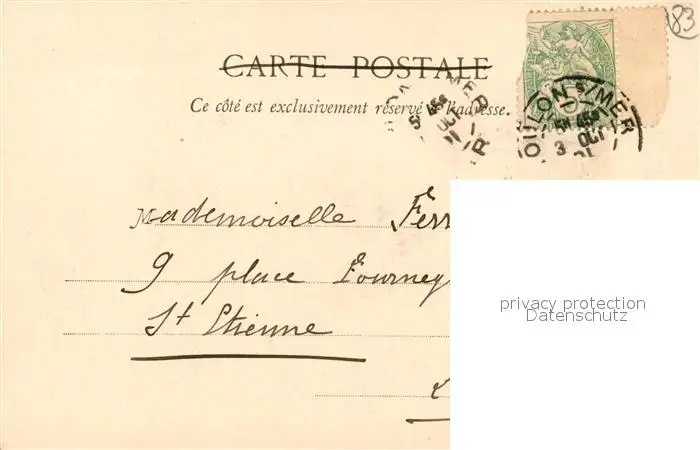 183
CARTE POSTALE
Ce côté est exclusivement réservé à l'adresse.
S/MER
5 45
OCT
OILLON S/MER
5 45
3 OCT
Mademoiselle Ferr
9 place Fourney
St Etienne
privacy protection
Datenschutz